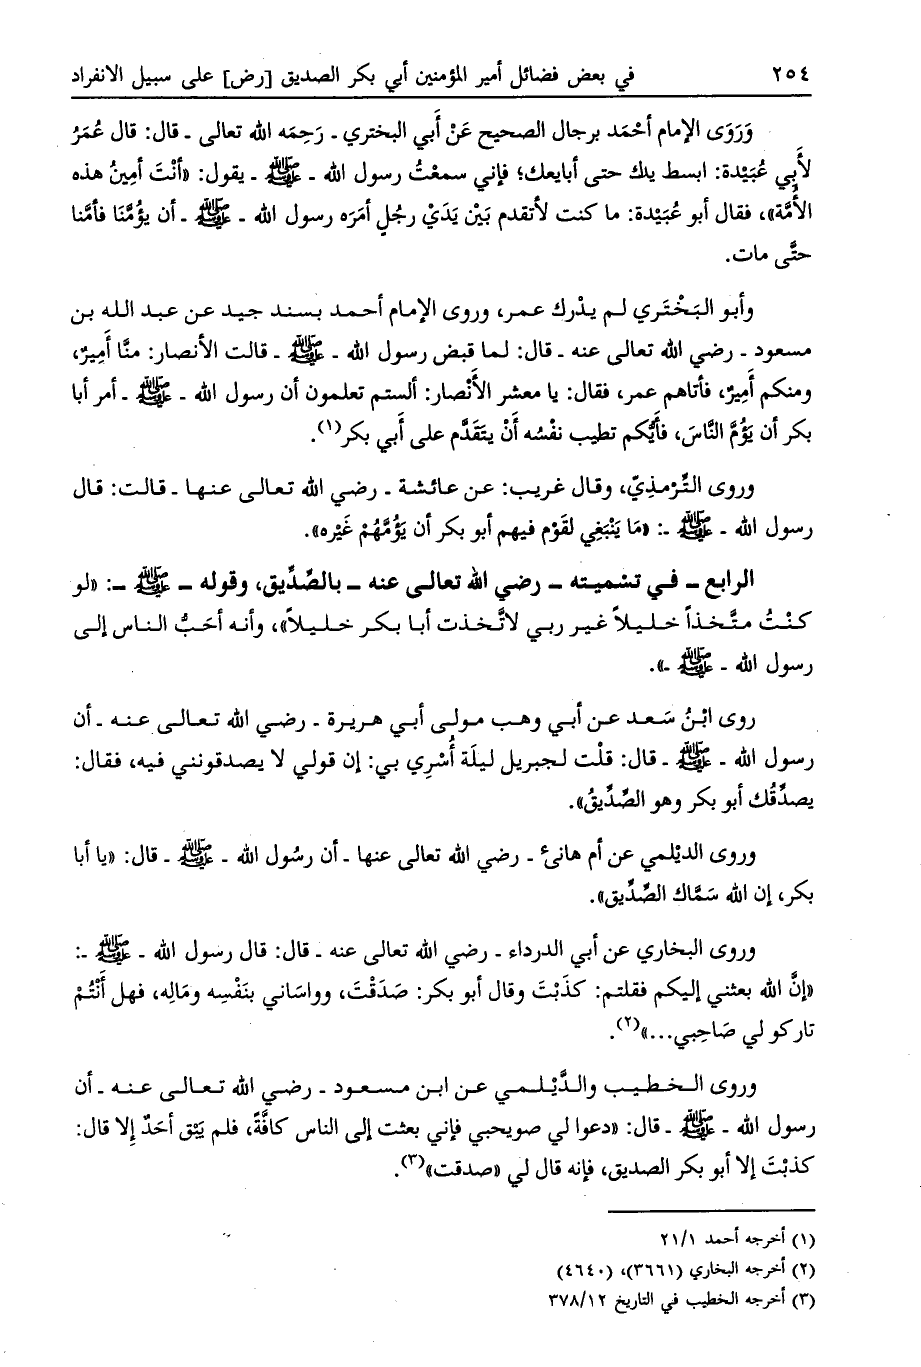 ٢٥٤ في بعض فضائل أمير المؤمنين أبي بكر الصديق [رض] على سبيل الانفراد
وَرَوَى الإمام أحْمَد برجال الصحيح عَنْ أَبي البختري ـ رَحِمَه الله تعالى ـ قال: قال عُمَرُ
لأَبِي عُبَيْدة: ابسط يدك حتى أبايعك؛ فإني سمعْتُ رسول الله ـ ﷺ ـ يقول: «أنْتَ أمِينُ هذه
الأُمَّة»، فقال أبو عُبَيْدة: ما كنت لأتقدم بَيْن يَدَيْ رجُلٍ أمَرَه رسول الله ـ ﷺ ـ أن يؤُمَّنَا فأمَّنا
حتَّى مات.
وأبو البَخْتَري لم يدْرك عمر، وروى الإمام أحمد بسند جيد عن عبد الله بن
مسعود ـ رضي الله تعالى عنه ـ قال: لما قبض رسول الله ـ ﷺ ـ قالت الأنصار: منَّا أَمِيرٌ،
ومنكم أَمِيرٌ، فأتاهم عمر، فقال: يا معشر الأَنْصار: ألستم تعلمون أن رسول الله ـ ﷺ ـ أمر أبا
بكر أن يَؤُمَّ النَّاسَ، فأَيُّكم تطيب نفْسُه أَنْ يتَقَدَّم على أَبي بكر(١).
وروى التِّرمذيّ، وقال غريب: عن عائشة ـ رضي الله تعالى عنها ـ قالت: قال
رسول الله ـ ﷺ ـ: «مَا يَنْبَغِي لقَوْم فيهم أبو بكر أن يَؤُمَّهُمْ غَيْره».
الرابع ـ في تسْميته ـ رضي الله تعالى عنه ـ بالصِّدِّيق، وقوله ـ ﷺ ـ: «لو
كنْتُ متَّخذاً خليلاً غير ربي لاتَّخذت أبا بكر خليلاً»، وأنه أحَبُّ الناس إلى
رسول الله ـ ﷺ ـ».
روى ابْنُ سَعد عن أبي وهب مولى أبي هريرة ـ رضي الله تعالى عنه ـ أن
رسول الله ـ ﷺ ـ قال: قلْت لجبريل ليلَة أُسْرِي بي: إن قولي لا يصدقونني فيه، فقال:
يصدِّقُك أبو بكر وهو الصِّدِّيقُ».
وروى الديْلمي عن أم هانئ ـ رضي الله تعالى عنها ـ أن رسُول الله ـ ﷺ ـ قال: «يا أبا
بكر، إن الله سَمَّاك الصِّدِّيق».
وروى البخاري عن أبي الدرداء ـ رضي الله تعالى عنه ـ قال: قال رسول الله ـ ﷺ ـ:
«إنَّ الله بعثني إليكم فقلتم: كذَبْتَ وقال أبو بكر: صَدَقْتَ، وواسَاني بنَفْسِه ومَالِه، فهل أَنْتُمْ
تاركو لي صَاحِبي...»(٢).
وروى الخطيب والدَّيْلمي عن ابن مسعود ـ رضي الله تعالى عنه ـ أن
رسول الله ـ ﷺ ـ قال: «دعوا لي صويحبي فإني بعثت إلى الناس كافَّةً، فلم يَبْق أحَدٌ إِلا قال:
كذبْتَ إلا أبو بكر الصديق، فإنه قال لي «صدقت»(٣).
(١) أخرجه أحمد ٢١/١
(٢) أخرجه البخاري (٣٦٦١)، (٤٦٤٠)
(٣) أخرجه الخطيب في التاريخ ٣٧٨/١٢